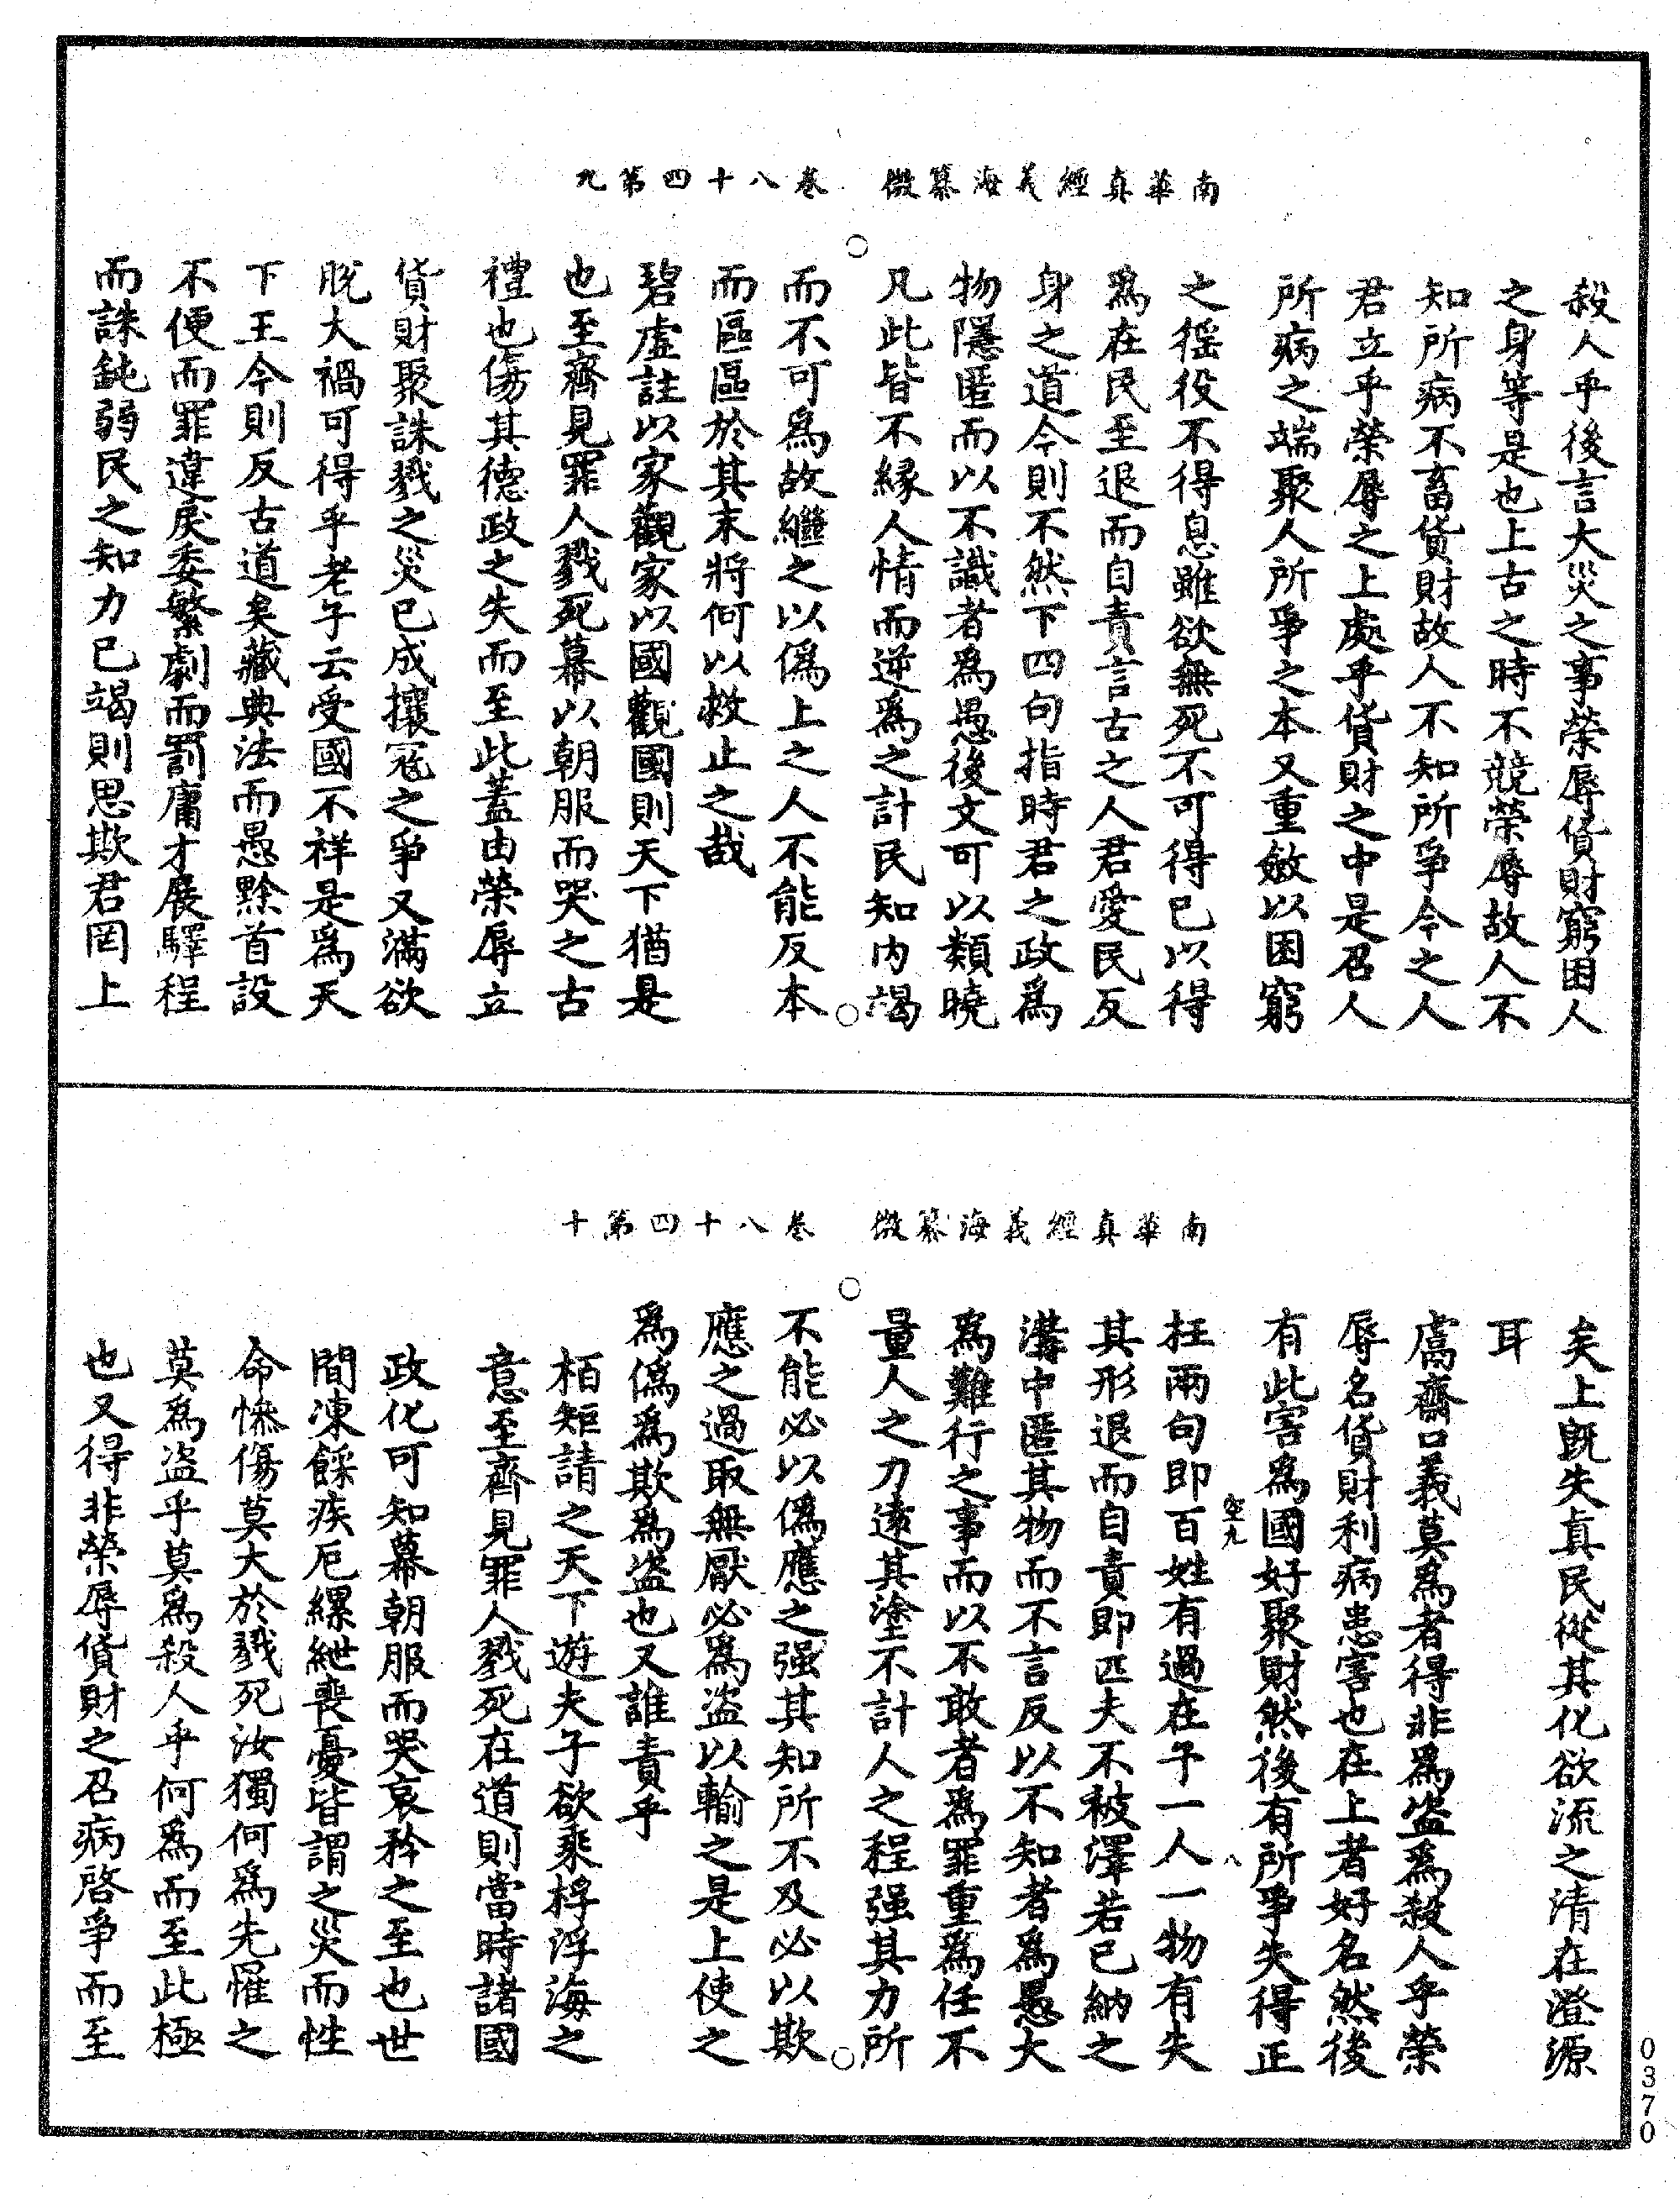 南華真經義海纂微　卷八十四第九
殺人乎後言大災之事榮辱貨財窮困人
之身等是也上古之時不競榮辱故人不
知所病不畜貨財故人不知所爭今之人
君立乎榮辱之上處乎貨財之中是召人
所病之端聚人所爭之本又重斂以困窮
之徭役不得息雖欲無死不可得已以得
爲在民至退而自責言古之人君愛民反
身之道今則不然下四句指時君之政爲
物隱匿而以不識者爲愚後文可以類曉
凡此皆不縁人情而逆爲之計民知内竭
而不可爲故繼之以僞上之人不能反本
而區區於其末將何以救止之哉
碧虚註以家觀家以國觀國則天下猶是
也至齊見罪人戮死幕以朝服而哭之古
禮也傷其德政之失而至此蓋由榮辱立
貨財聚誅戮之災已成攘寇之爭又滿欲
脫大禍可得乎老子云受國不祥是爲天
下王今則反古道矣藏典法而愚黔首設
不便而罪違戾委繁劇而罰庸才展驛程
而誅鈍弱民之知力已竭則思欺君罔上
南華真經義海纂微　卷八十四第十
矣上既失真民從其化欲流之清在澄源
耳
鬳齋口義莫爲者得非爲盗爲殺人乎榮
辱名貨財利病患害也在上者好名然後
有此害爲國好聚財然後有所爭失得正
空九
八
枉兩句即百姓有過在予一人一物有失
其形退而自責即匹夫不被澤若已納之
溝中匿其物而不言反以不知者爲愚大
爲難行之事而以不敢者爲罪重爲任不
量人之力遠其塗不計人之程强其力所
不能必以僞應之强其知所不及必以欺
應之過取無厭必爲盗以輸之是上使之
爲僞爲欺爲盗也又誰責乎
栢矩請之天下遊夫子欲乘桴浮海之
意至齊見罪人戮死在道則當時諸國
政化可知幕朝服而哭哀矜之至也世
間凍餒疾厄縲絏喪憂皆謂之災而性
命慘傷莫大於戮死汝獨何爲先罹之
莫爲盗乎莫爲殺人乎何爲而至此極
也又得非榮辱貨財之召病啓爭而至
0370